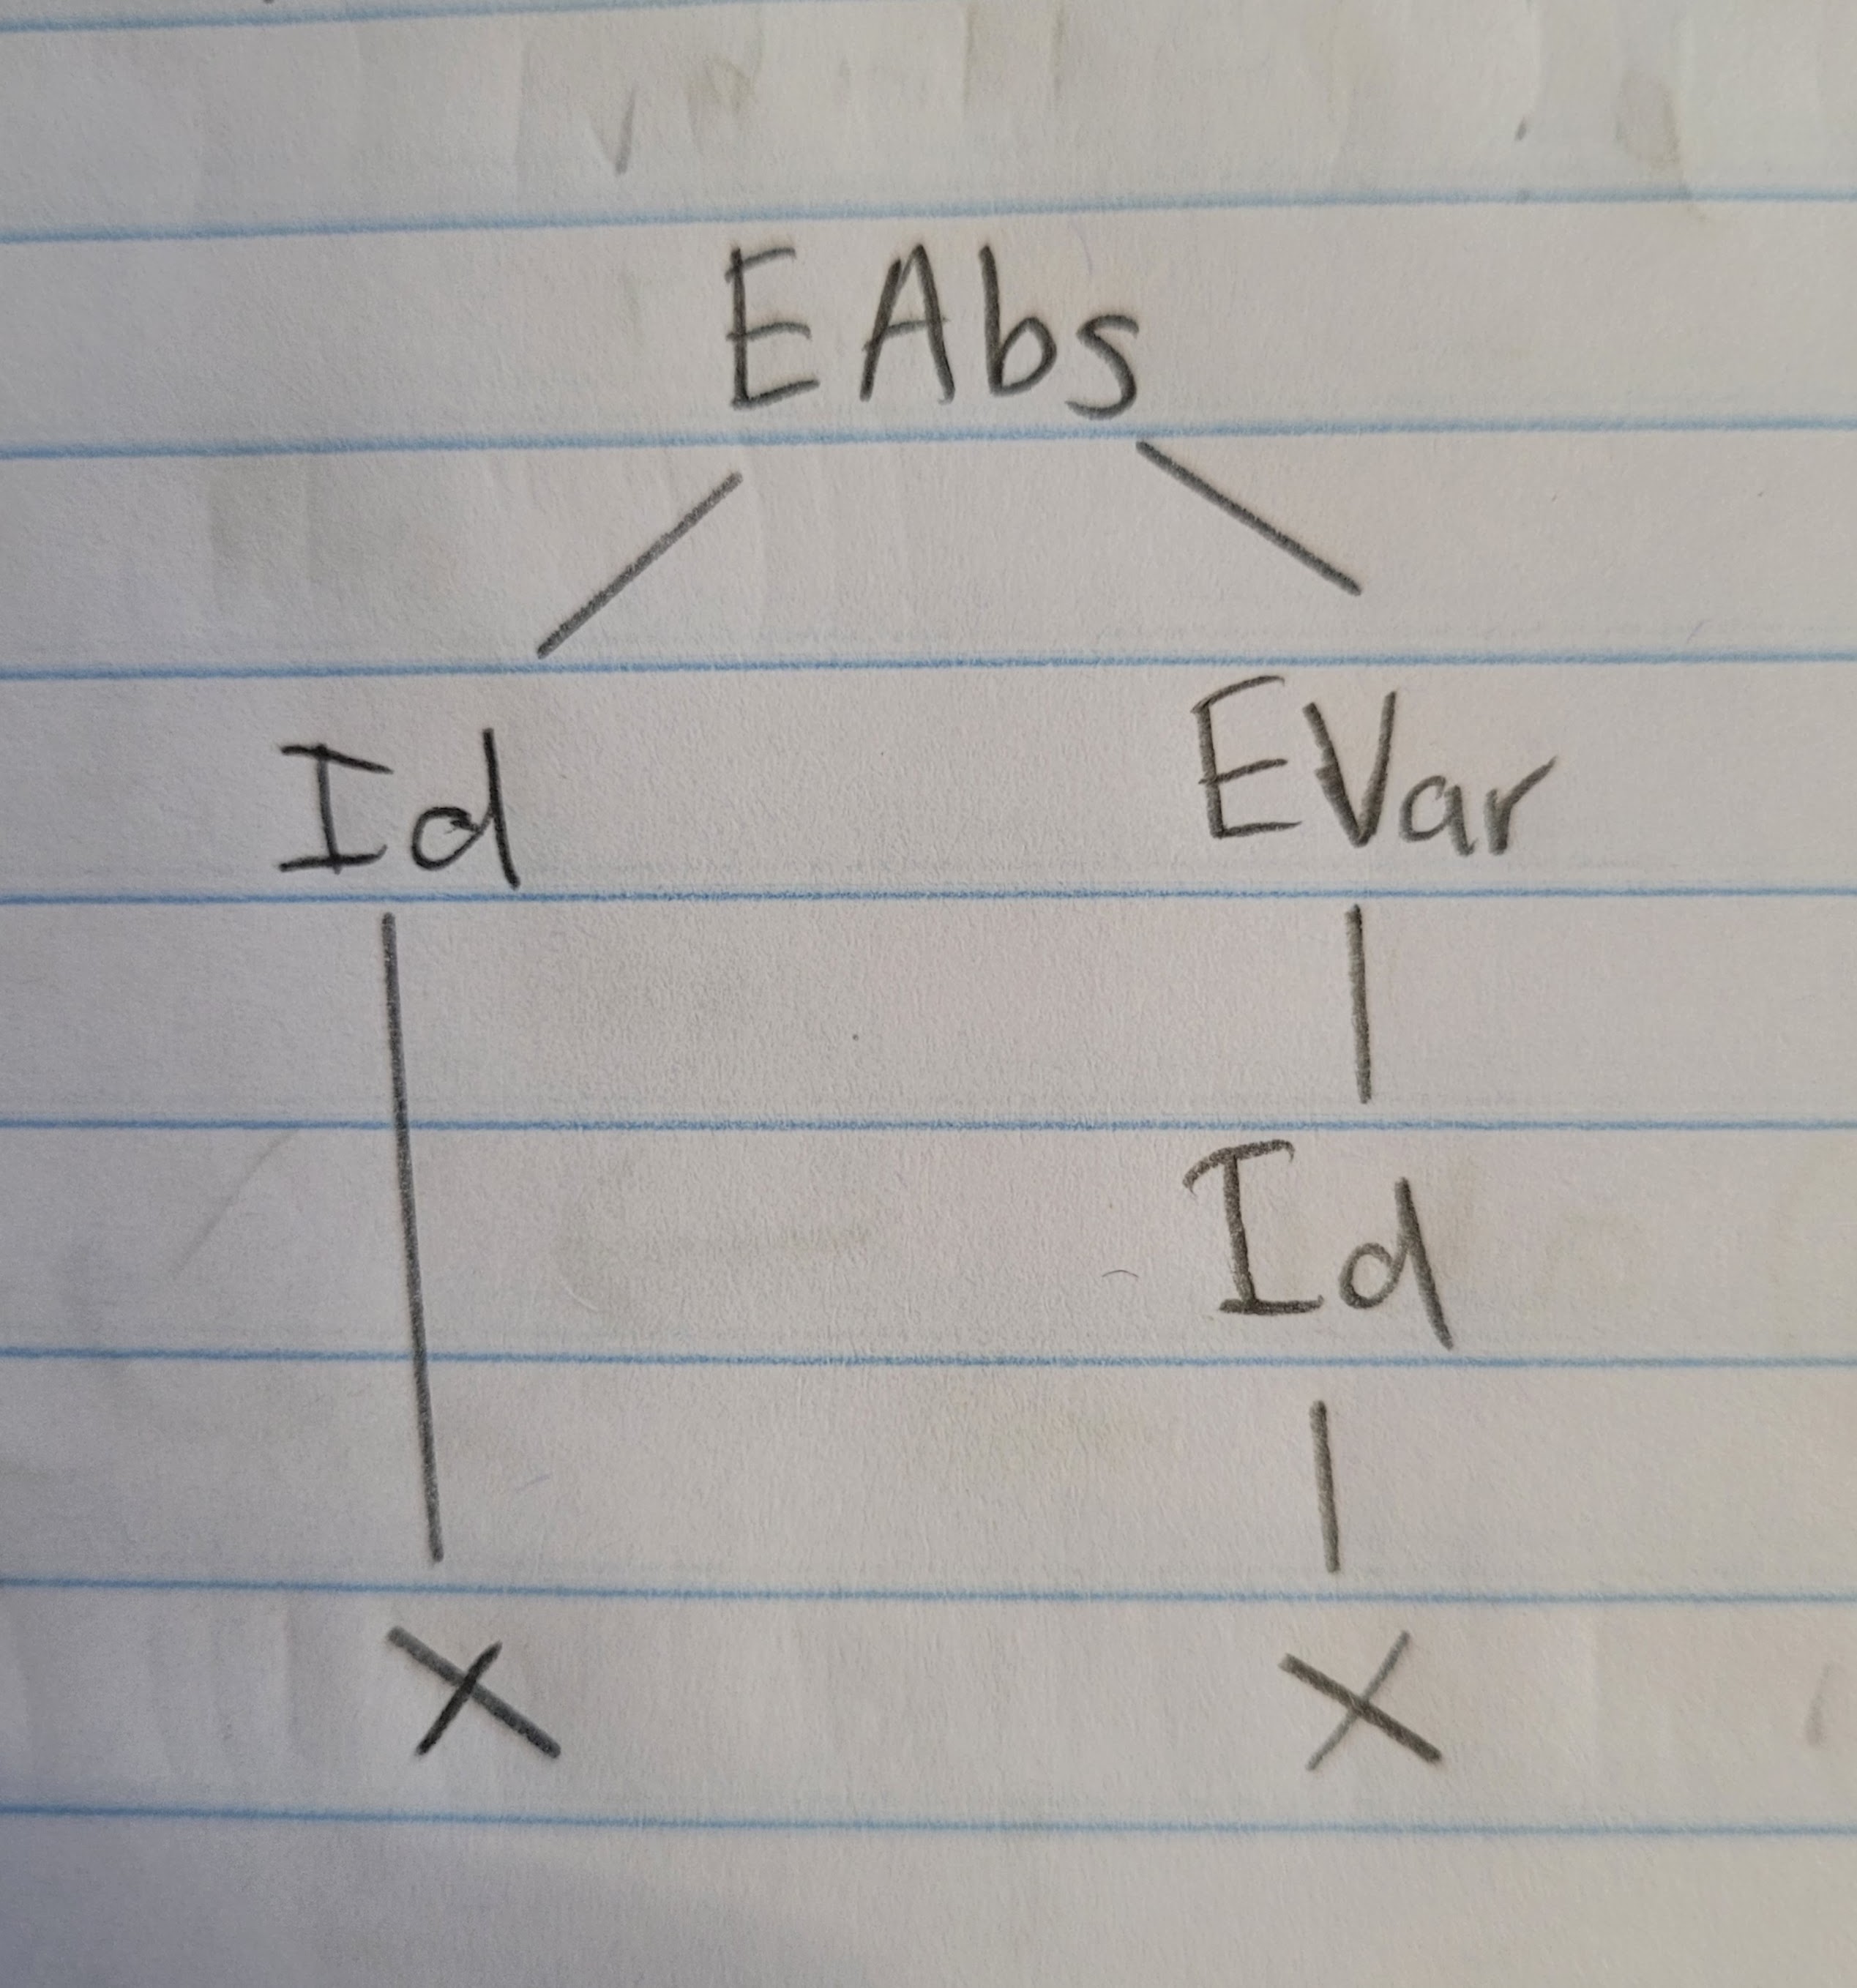 EAbs
Id EVar
Id
X X